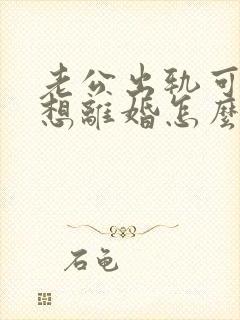 老公出轨可
想離婚怎麼
石龟